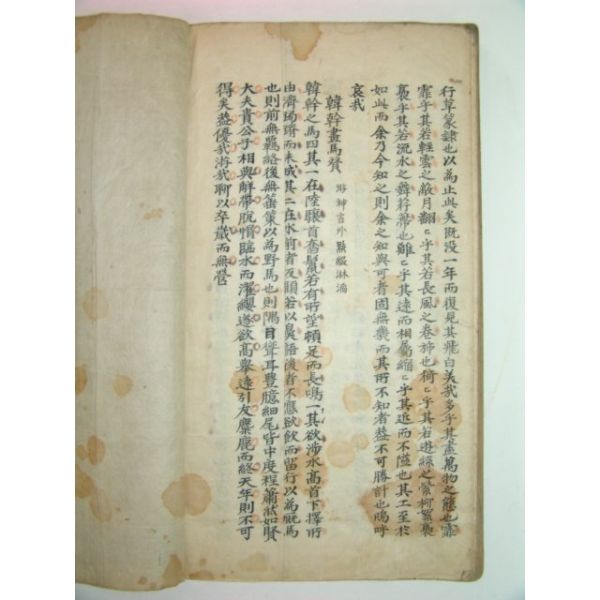 行草篆隷也以為止此矣既没一年而復見其飛白美哉多乎其盡萬物之態也霏
霏乎其若輕雲之蔽月翻〻乎其若長風之卷旆也猗〻乎其若遊絲之縈柳絮褭
褭乎其若流水之舞荇帶也離〻乎其遠而相属縮〻乎其近而不隘也其工至於
如此而余乃今知之則余之知與可者固無幾而其所不知者盖不可勝計也嗚呼
哀哉
韓幹畫馬賛 游神言外點綴淋漓
韓幹之馬四其一在陸驤首奮鬣若有所望頓足而長鳴一其欲涉水高首下擇所
由濟跼蹐而未成其二在水前者反顧若以鼻語後者不應欲飲而留行以為厩馬
也則前無羈絡後無箠策以為野馬也則隅目聳耳豐臆細尾皆中度程蕭然如賢
大夫貴公子相與解帶脫帽臨水而濯纓遂欲高舉遠引友麋鹿而終天年則不可
得矣盖優哉游哉聊以卒歲而無營